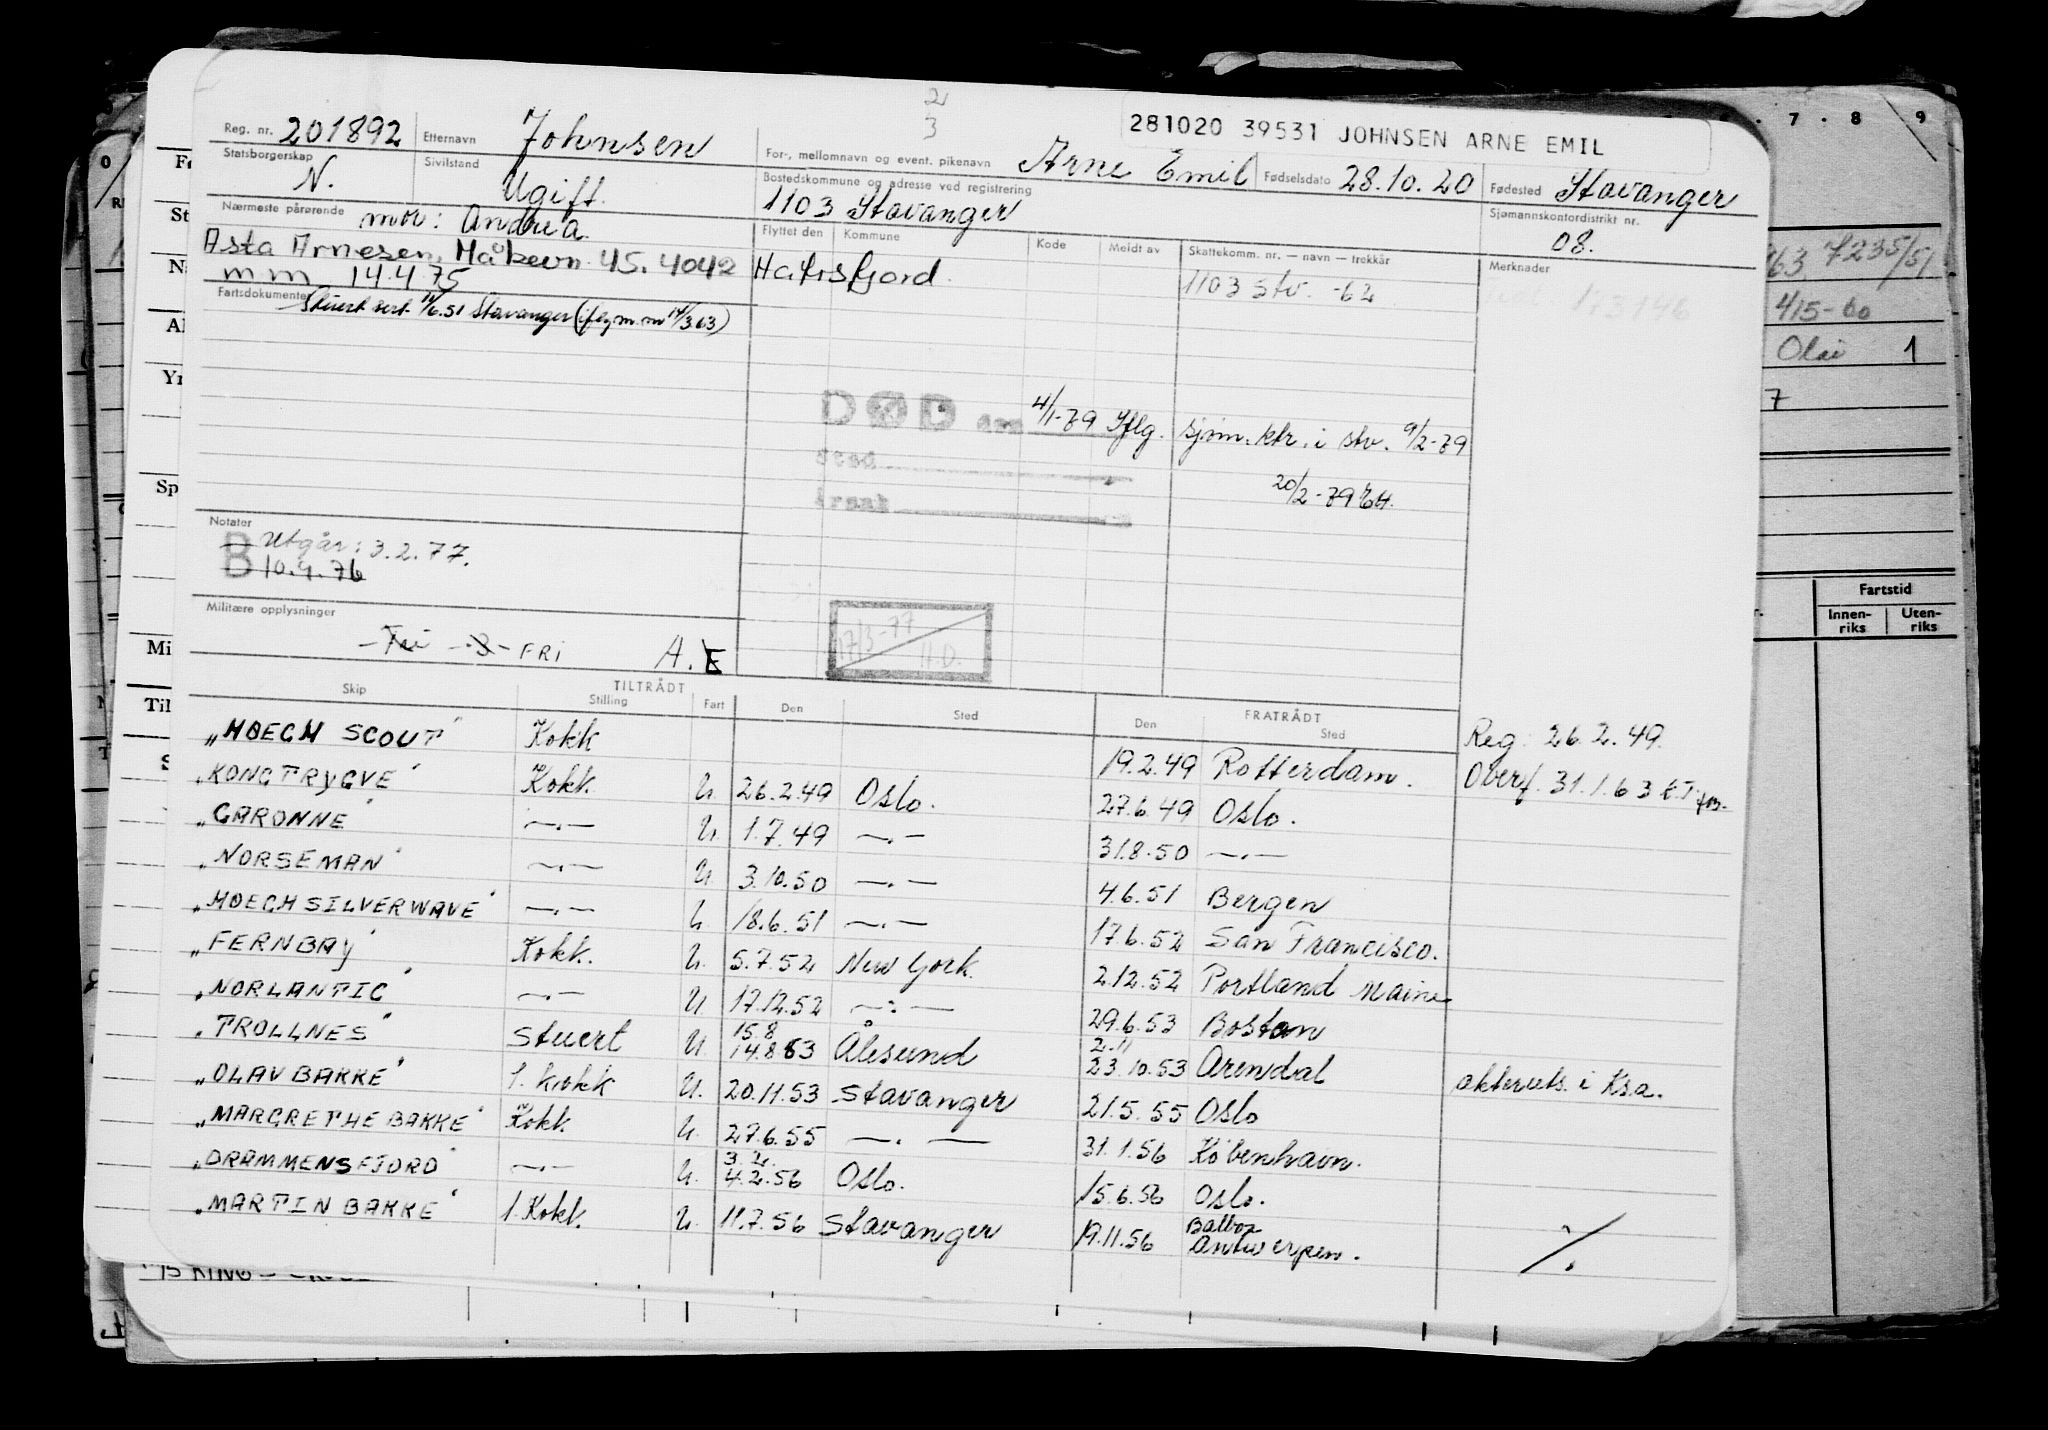 2
3
281020 39531 JOHNSEN ARNE EMIL
Reg. nr. 201892 Etternavn Johnsen For-, mellomnavn og event. pikenavn Arne Emil Fødselsdato 28.10.20 Fødested Stavanger
Statsborgerskap N. Sivilstand Ugift. Bostedskommune og adresse ved registrering 1103 Stavanger Sjømannskontordistrikt nr. 08.
Nærmeste pårørende mor: Andrea. Flyttet den Kommune Kode Meldt av Skattekomm. nr. — navn — trekkår Merknader
Asta Arnesen, Måkevn. 45. 4042 Hafrsfjord. 1103 Stv. -62
m m 14.4.75
Fartsdokumenter Stuert sert. 11/6.51 Stavanger (iflg. m.m 14/3 63)
173146
DØD den 4/1-79 Iflg. sjøm. ktr. i stv. 9/2-79
Sted
20/2-79
Årsak
Notater
B Utgår: 3.2.77.
B 10.4.76
Militære opplysninger
Fri -3- FRI A.E
17/3-77 H.D.
TILTRÅDT FRATRÅDT
Skip Stilling Fart Den Sted Den Sted
„HØEGH SCOUT" Kokk 19.2.49 Rotterdam. Reg: 26.2.49.
„KONG TRYGVE" Kokk. U. 26.2.49 Oslo. 27.6.49 Oslo. Overf. 31.1.63
„GARONNE" —.— U. 1.7.49 —.— 31.8.50 —.—
„NORSEMAN" —.— U. 3.10.50 —.— 4.6.51 Bergen
„HØEGH SILVERWAVE" —.— U. 18.6.51 —.— 17.6.52 San Francisco.
„FERNBAY" Kokk. U. 5.7.52 New York. 2.12.52 Portland Maine
„NORLANTIC" —.— U. 17.12.52 —.— 29.6.53 Boston
15.8 2.11
„TROLLNES" Stuert U. 14.8 53 Ålesund 23.10.53 Arendal
„OLAV BAKKE" 1. kokk U. 20.11.53 Stavanger 21.5.55 Oslo akteruts. i Ksa.
„MARGRETHE BAKKE" Kokk U. 27.6.55 —.— 31.1.56 København.
3.2.
„DRAMMENSFJORD" —.— U. 4.2.56 Oslo. 15.6.56 Oslo.
Balboa
„MARTIN BAKKE" 1. Kokk. U. 11.7.56 Stavanger 19.11.56 Antwerpen. ./.
7 8 9
7235/51
415-60
Olai 1
7
Fartstid
Innen-
riks
Uten-
riks